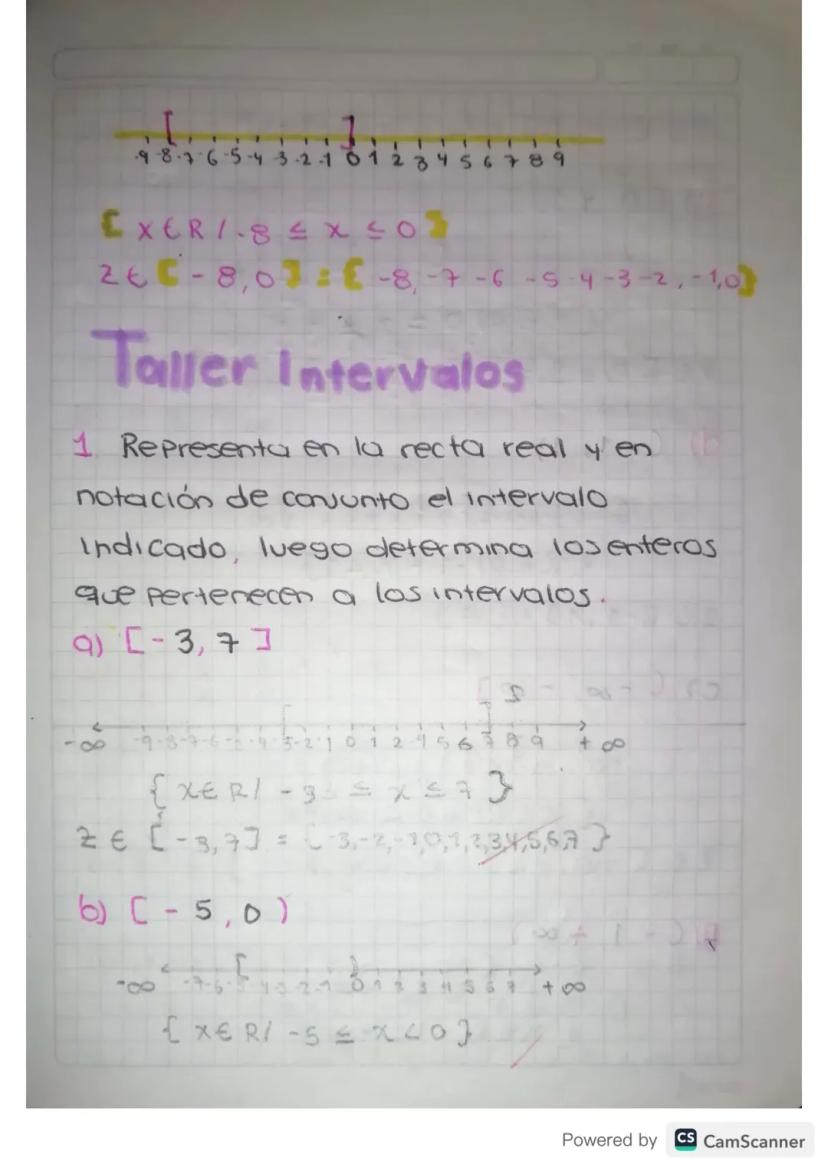 -9 -8 -7 -6 -5 -4 -3 -2 -1 0 1 2 3 4 5 6 7 8 9
{ x ∈ R / -8 ≤ x ≤ 0 }
Z ∈ [ - 8, 0 ] = { -8, -7 -6 -5 -4 -3 -2, -1, 0}
Taller Intervalos
1 Representa en la recta real y en
notación de conjunto el intervalo
indicado, luego determina los enteros
que pertenecen a los intervalos.
a) [ - 3, 7 ]
-∞ -9 -8 -7 -6 -5 -4 -3 -2 -1 0 1 2 4 5 6 7 8 9 + ∞
{ x ∈ R / - 3 ≤ x ≤ 7 }
Z ∈ [ - 3, 7 ] = { -3, -2, -1, 0, 1, 2, 3, 4, 5, 6, 7 }
b) [ - 5, 0 )
-∞ -7 -6 -5 -4 -3 -2 -1 0 1 2 3 4 5 6 7 + ∞
{ x ∈ R / -5 ≤ x < 0 }
Powered by CS CamScanner